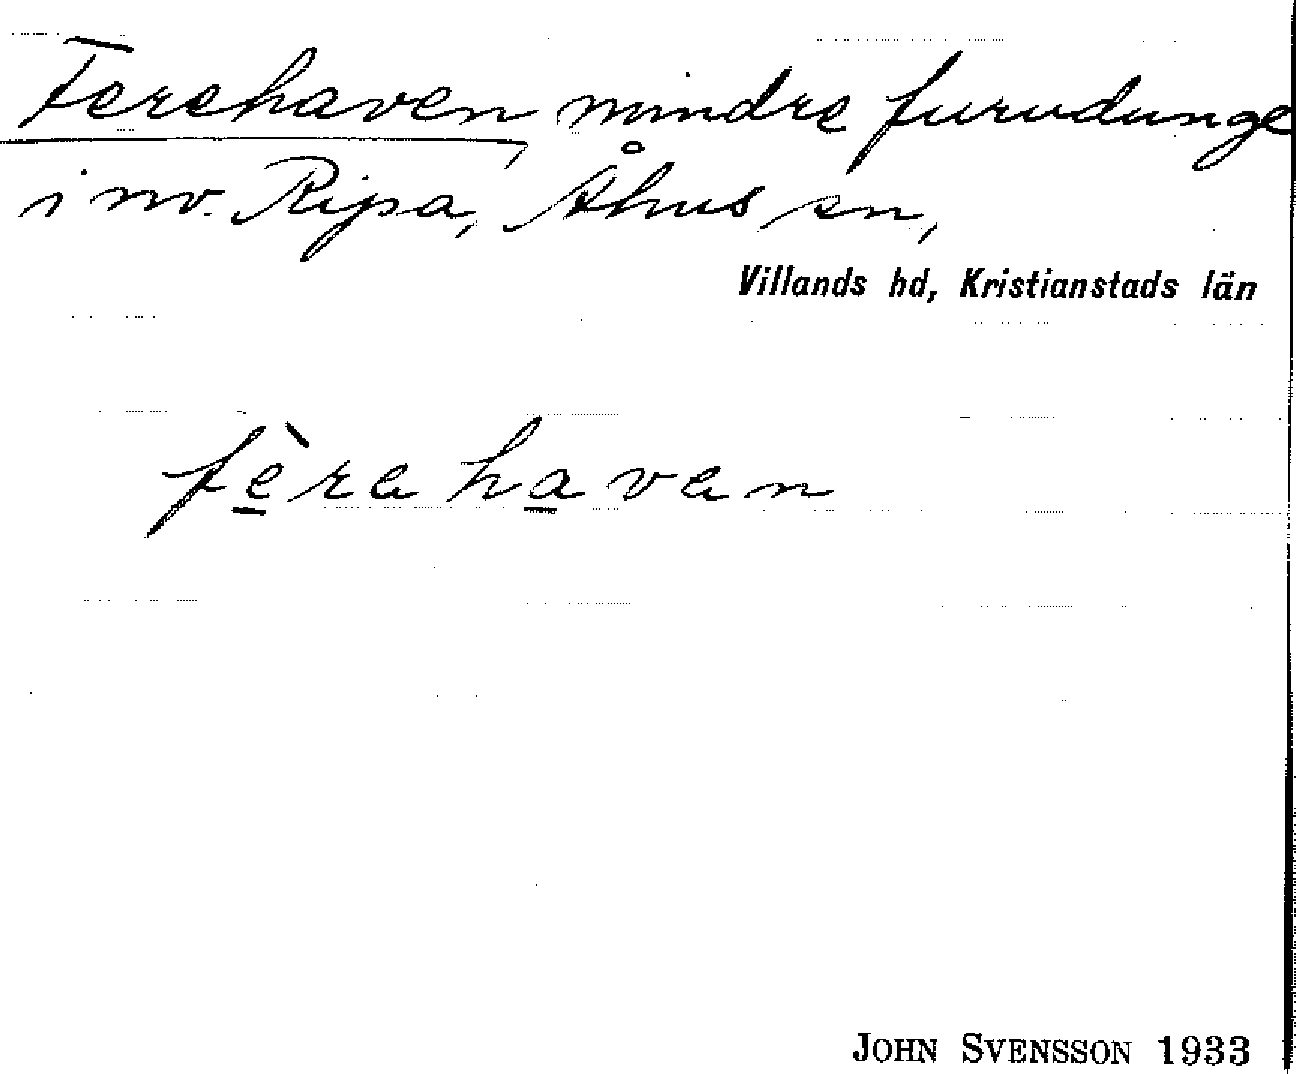 Ferehaven, mindre furudunge
i nv. Ripa, Åhus sn,
Villands hd, Kristianstads län
fèrahavan
JOHN SVENSSON 1933